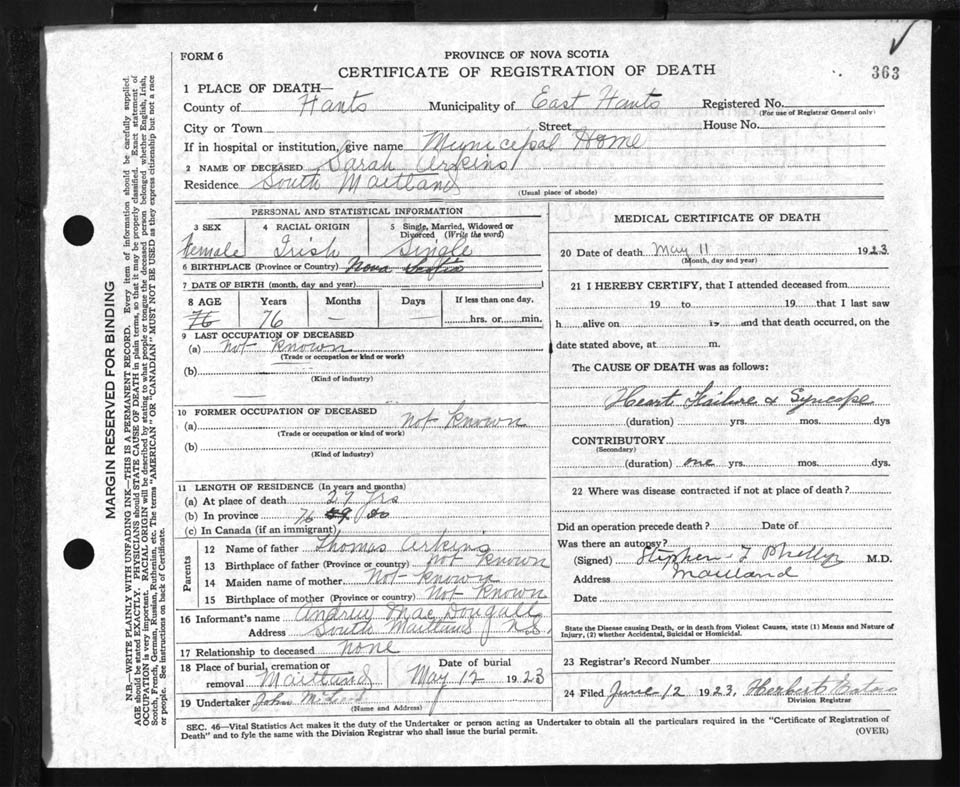 FORM 6
PROVINCE OF NOVA SCOTIA
CERTIFICATE OF REGISTRATION OF DEATH
363
1 PLACE OF DEATH—
County of Hants Municipality of East Hants Registered No.
(For use of Registrar General only)
City or Town Street House No.
If in hospital or institution, give name Municipal Home
2 NAME OF DECEASED Sarah Arkins
Residence South Maitland
(Usual place of abode)
PERSONAL AND STATISTICAL INFORMATION
3 SEX 4 RACIAL ORIGIN 5 Single, Married, Widowed or Divorced (Write the word)
Female Irish Single
6 BIRTHPLACE (Province or Country) Nova Scotia
7 DATE OF BIRTH (month, day and year)
8 AGE Years Months Days If less than one day.
76 76 — — hrs. or min.
9 LAST OCCUPATION OF DECEASED
(a) Not Known
(Trade or occupation or kind or work)
(b)
(Kind of industry)
10 FORMER OCCUPATION OF DECEASED
(a) Not Known
(Trade or occupation or kind of work)
(b)
(Kind of industry)
11 LENGTH OF RESIDENCE (In years and months)
(a) At place of death 27 Yrs
(b) In province 76 do
(c) In Canada (if an immigrant)
Parents
12 Name of father Thomas Arkins
13 Birthplace of father (Province or country) Not Known
14 Maiden name of mother Not Known
15 Birthplace of mother (Province or country) Not Known
16 Informant's name Andrew MacDougall
Address South Maitland N.S.
17 Relationship to deceased None
18 Place of burial, cremation or removal Maitland Date of burial May 12 1923
19 Undertaker John
(Name and Address)
MEDICAL CERTIFICATE OF DEATH
20 Date of death May 11 1923
(Month, day and year)
21 I HEREBY CERTIFY, that I attended deceased from
19 to 19 that I last saw
h alive on 19 and that death occurred, on the
date stated above, at m.
The CAUSE OF DEATH was as follows:
Heart Failure & Syncope
(duration) yrs. mos. dys
CONTRIBUTORY
(Secondary)
(duration) one yrs. mos. dys.
22 Where was disease contracted if not at place of death?
Did an operation precede death? Date of
Was there an autopsy?
(Signed) Stephen F M.D.
Address Maitland
Date
State the Disease causing Death, or in death from Violent Causes, state (1) Means and Nature of
Injury, (2) whether Accidental, Suicidal or Homicidal.
23 Registrar's Record Number
24 Filed June 12 1923, Herbert
Division Registrar
SEC. 46—Vital Statistics Act makes it the duty of the Undertaker or person acting as Undertaker to obtain all the particulars required in the "Certificate of Registration of
Death" and to fyle the same with the Division Registrar who shall issue the burial permit.
(OVER)
MARGIN RESERVED FOR BINDING
N.B.—WRITE PLAINLY WITH UNFADING INK—THIS IS A PERMANENT RECORD. Every item of information should be carefully supplied.
AGE should be stated EXACTLY. PHYSICIANS should STATE CAUSE OF DEATH in plain terms, so that it may be properly classified. Exact statement of
OCCUPATION is very important. RACIAL ORIGIN will be described by stating to what people or tongue the deceased person belonged whether English, Irish,
Scotch, French, German, Russian, Ruthenian, etc. The terms "AMERICAN" OR "CANADIAN" MUST NOT BE USED as they express citizenship but not a race
or people. See instructions on back of Certificate.